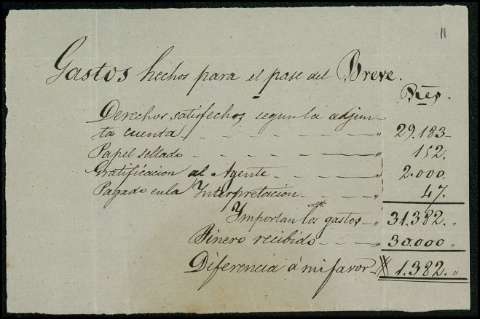 11
Gastos hechos para el pase del Breve.
Rs. vn.
Derechos satisfechos segun la adjun-
ta cuenta - - - - - 29.183-
Papel sellado - - - - - 152.
Gratificacion al Agente - - - - 2.000.
Pagado en la Interpretacion - - - 47.
Importan los gastos - - 31.382.
Dinero recibido - - - 30.000.
Diferencia á mi favor - 1.382.